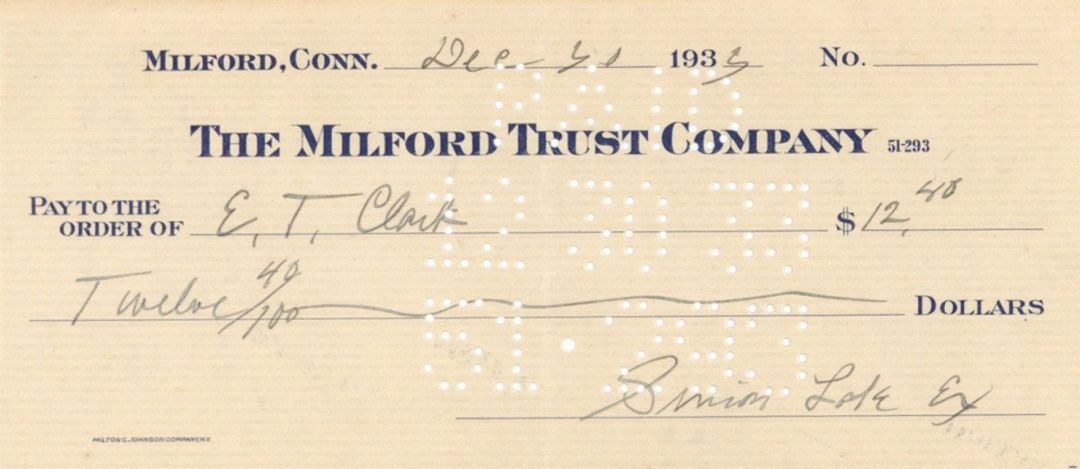 MILFORD, CONN. Dec - 30 1933 NO.
THE MILFORD TRUST COMPANY 51-293
PAY TO THE
ORDER OF E. T. Clark $ 12.40
Twelve 40/100 DOLLARS
Simon Lake Ex
MILTON C. JOHNSON COMPANY, N.Y.